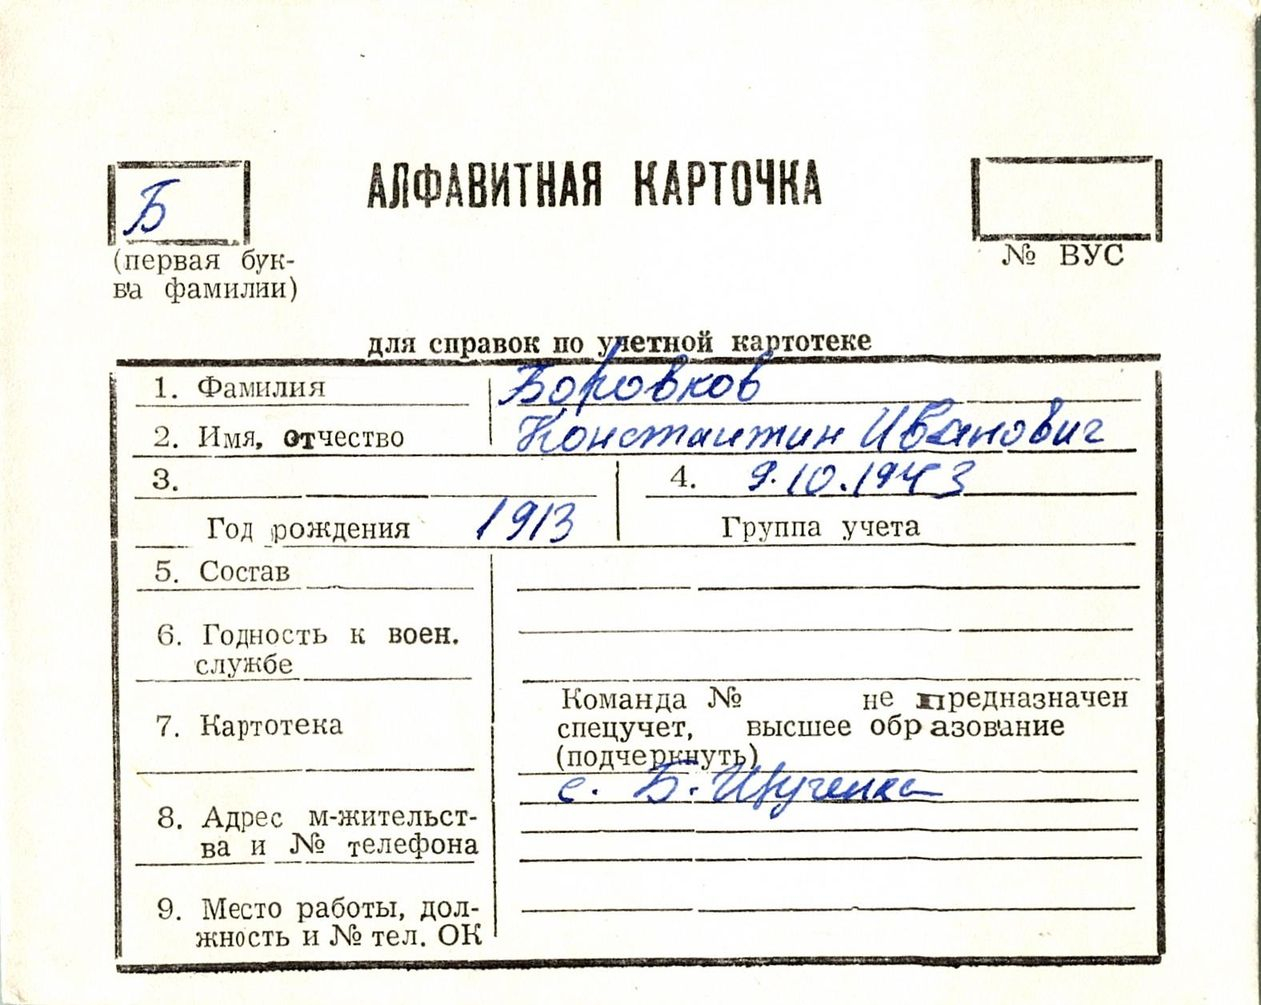 АЛФАВИТНАЯ КАРТОЧКА
Б
(первая бук-
ва фамилии)
№ ВУС
для справок по учетной картотеке
1. Фамилия Боровков
2. Имя, отчество Константин Иванович
3.
4. 9.10.1943
Год рождения 1913
Группа учета
5. Состав
6. Годность к воен.
службе
7. Картотека
Команда № не предназначен
спецучет, высшее образование
(подчеркнуть)
с. Б. Щученка
8. Адрес м-жительст-
ва и № телефона
9. Место работы, дол-
жность и № тел. ОК